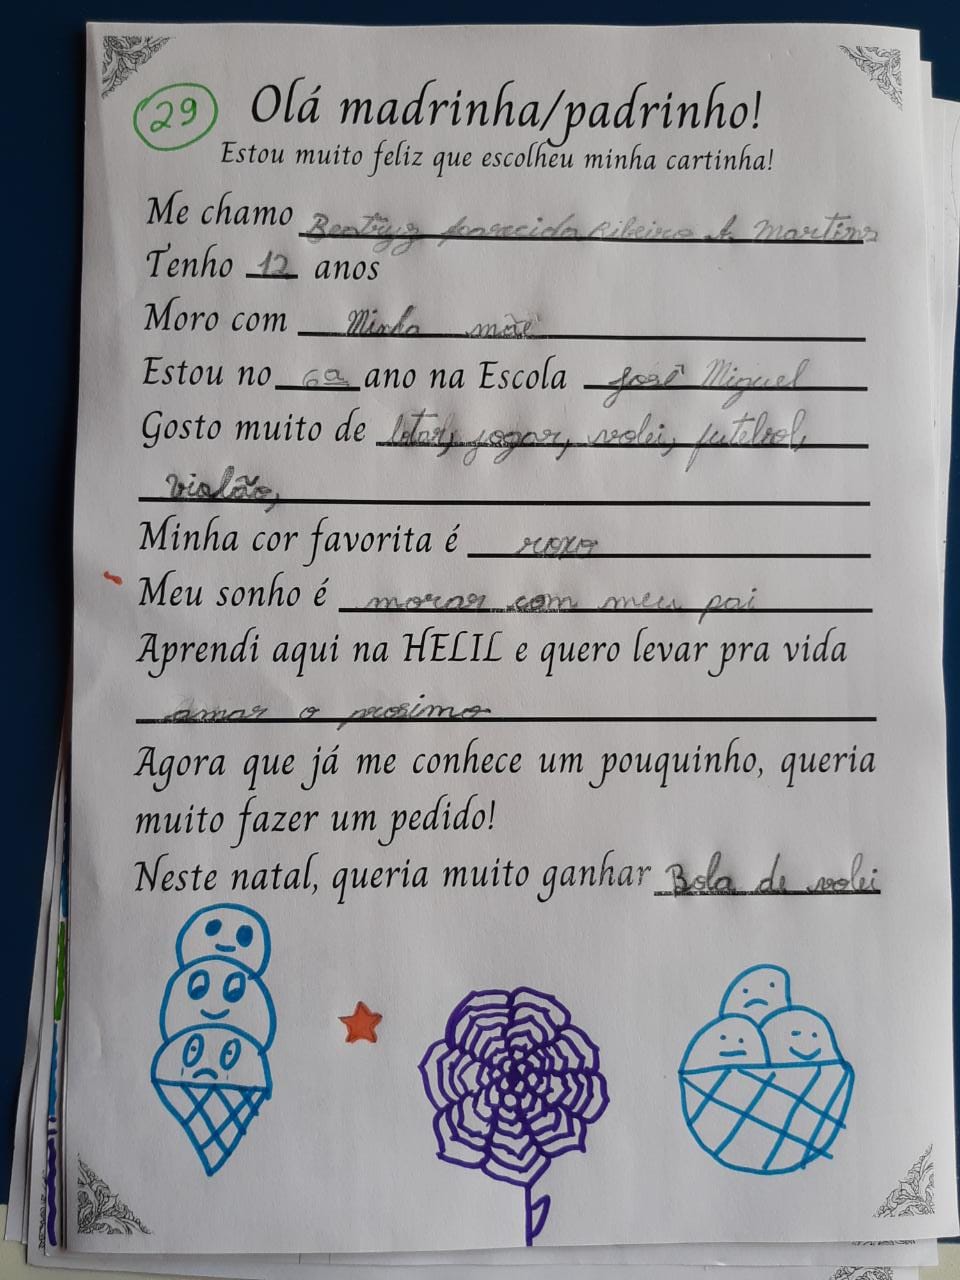 29
Olá madrinha/padrinho!
Estou muito feliz que escolheu minha cartinha!
Me chamo Beatryz Aparecida Ribeiro A. Martins
Tenho 12 anos
Moro com Minha mãe
Estou no 6º ano na Escola José Miguel
Gosto muito de jogar, volei, futebol,
violão,
Minha cor favorita é roxo
Meu sonho é morar com meu pai
Aprendi aqui na HELIL e quero levar pra vida
amar o prosimo
Agora que já me conhece um pouquinho, queria
muito fazer um pedido!
Neste natal, queria muito ganhar Bola de volei